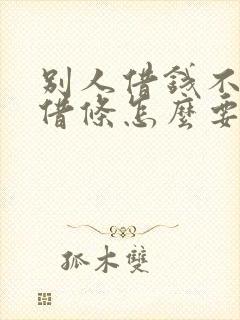 別人借錢不
借條怎麼要
孤木雙